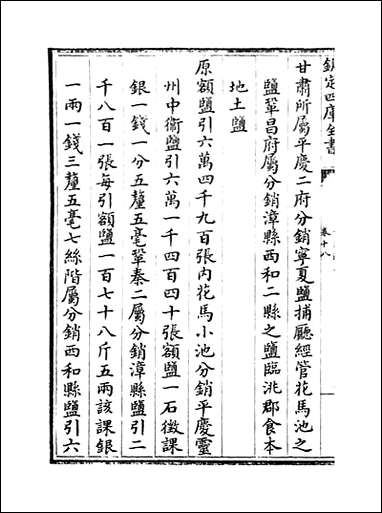 欽定四庫全書
卷十八
甘肅所屬平慶二府分銷寧夏鹽捕廳經管花馬池之
鹽鞏昌府屬分銷漳縣西和二縣之鹽臨洮郡食本
地土鹽
原額鹽引六萬四千九百張内花馬小池分銷平慶靈
州中衛鹽引六萬一千四百四十張額鹽一石徴課
銀一錢一分五釐五毫鞏秦二屬分銷漳縣鹽引二
千八百一張每引額鹽一百七十八斤五兩該課銀
一兩一錢三釐五毫七絲階屬分銷西和縣鹽引六